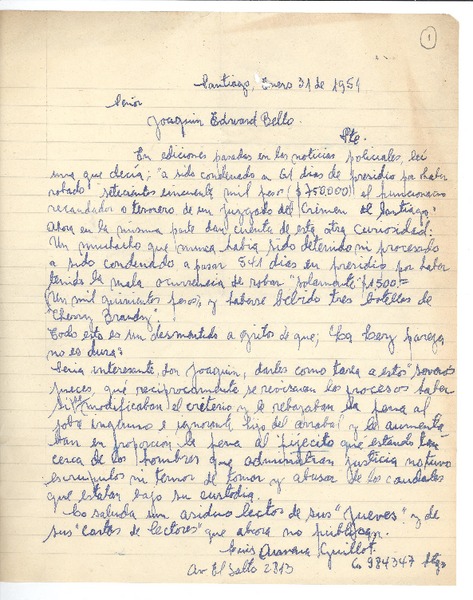 1
Santiago, Enero 31 de 1954
Señor
Joaquin Edward Bello.
Pte.
En ediciones pasadas en las noticias policiales, leí
una que decía; "a sido condenado en 61 días de presidio por haber
robado setecientos cincuenta mil pesos ($750,000) el funcionario
recaudador o tesorero de un juzgado del Crimen de Santiago".
Ahora en la misma parte dan cuenta de esta otra curiosidad:
Un muchacho que nunca había sido detenido ni procesado
a sido condenado a pasar 541 días en presidio por haber
tenido la mala ocurrencia de robar "solamente" $1500.=
(Un mil quinientos pesos) y haberse bebido tres botellas de
"Cherry Brandy"
Todo esto es un desmentido a gritos de que; "La Ley pareja
no es dura"
Seria interesante, don Joaquin, darles como tarea a estos "severos"
jueces, que reciprocamente se revisaran los procesos haber
si modificaban el criterio y le rebajaban la pena al
pobre ingenuo e ignorante hijo del arrabal y le aumenta
ban en proporcion la pena al "pijecito" que estando tan
cerca de los hombres que administran justicia no tuvo
escrupulos ni temor de tomar y abusar de los caudales
que estaban bajo su custodia.
Lo saluda un asiduo lector de sus "jueves" y de
sus "cartas de lectores" que ahora no publican.
Luis Guillot.
Av El Salto 2813
984347 Stgo